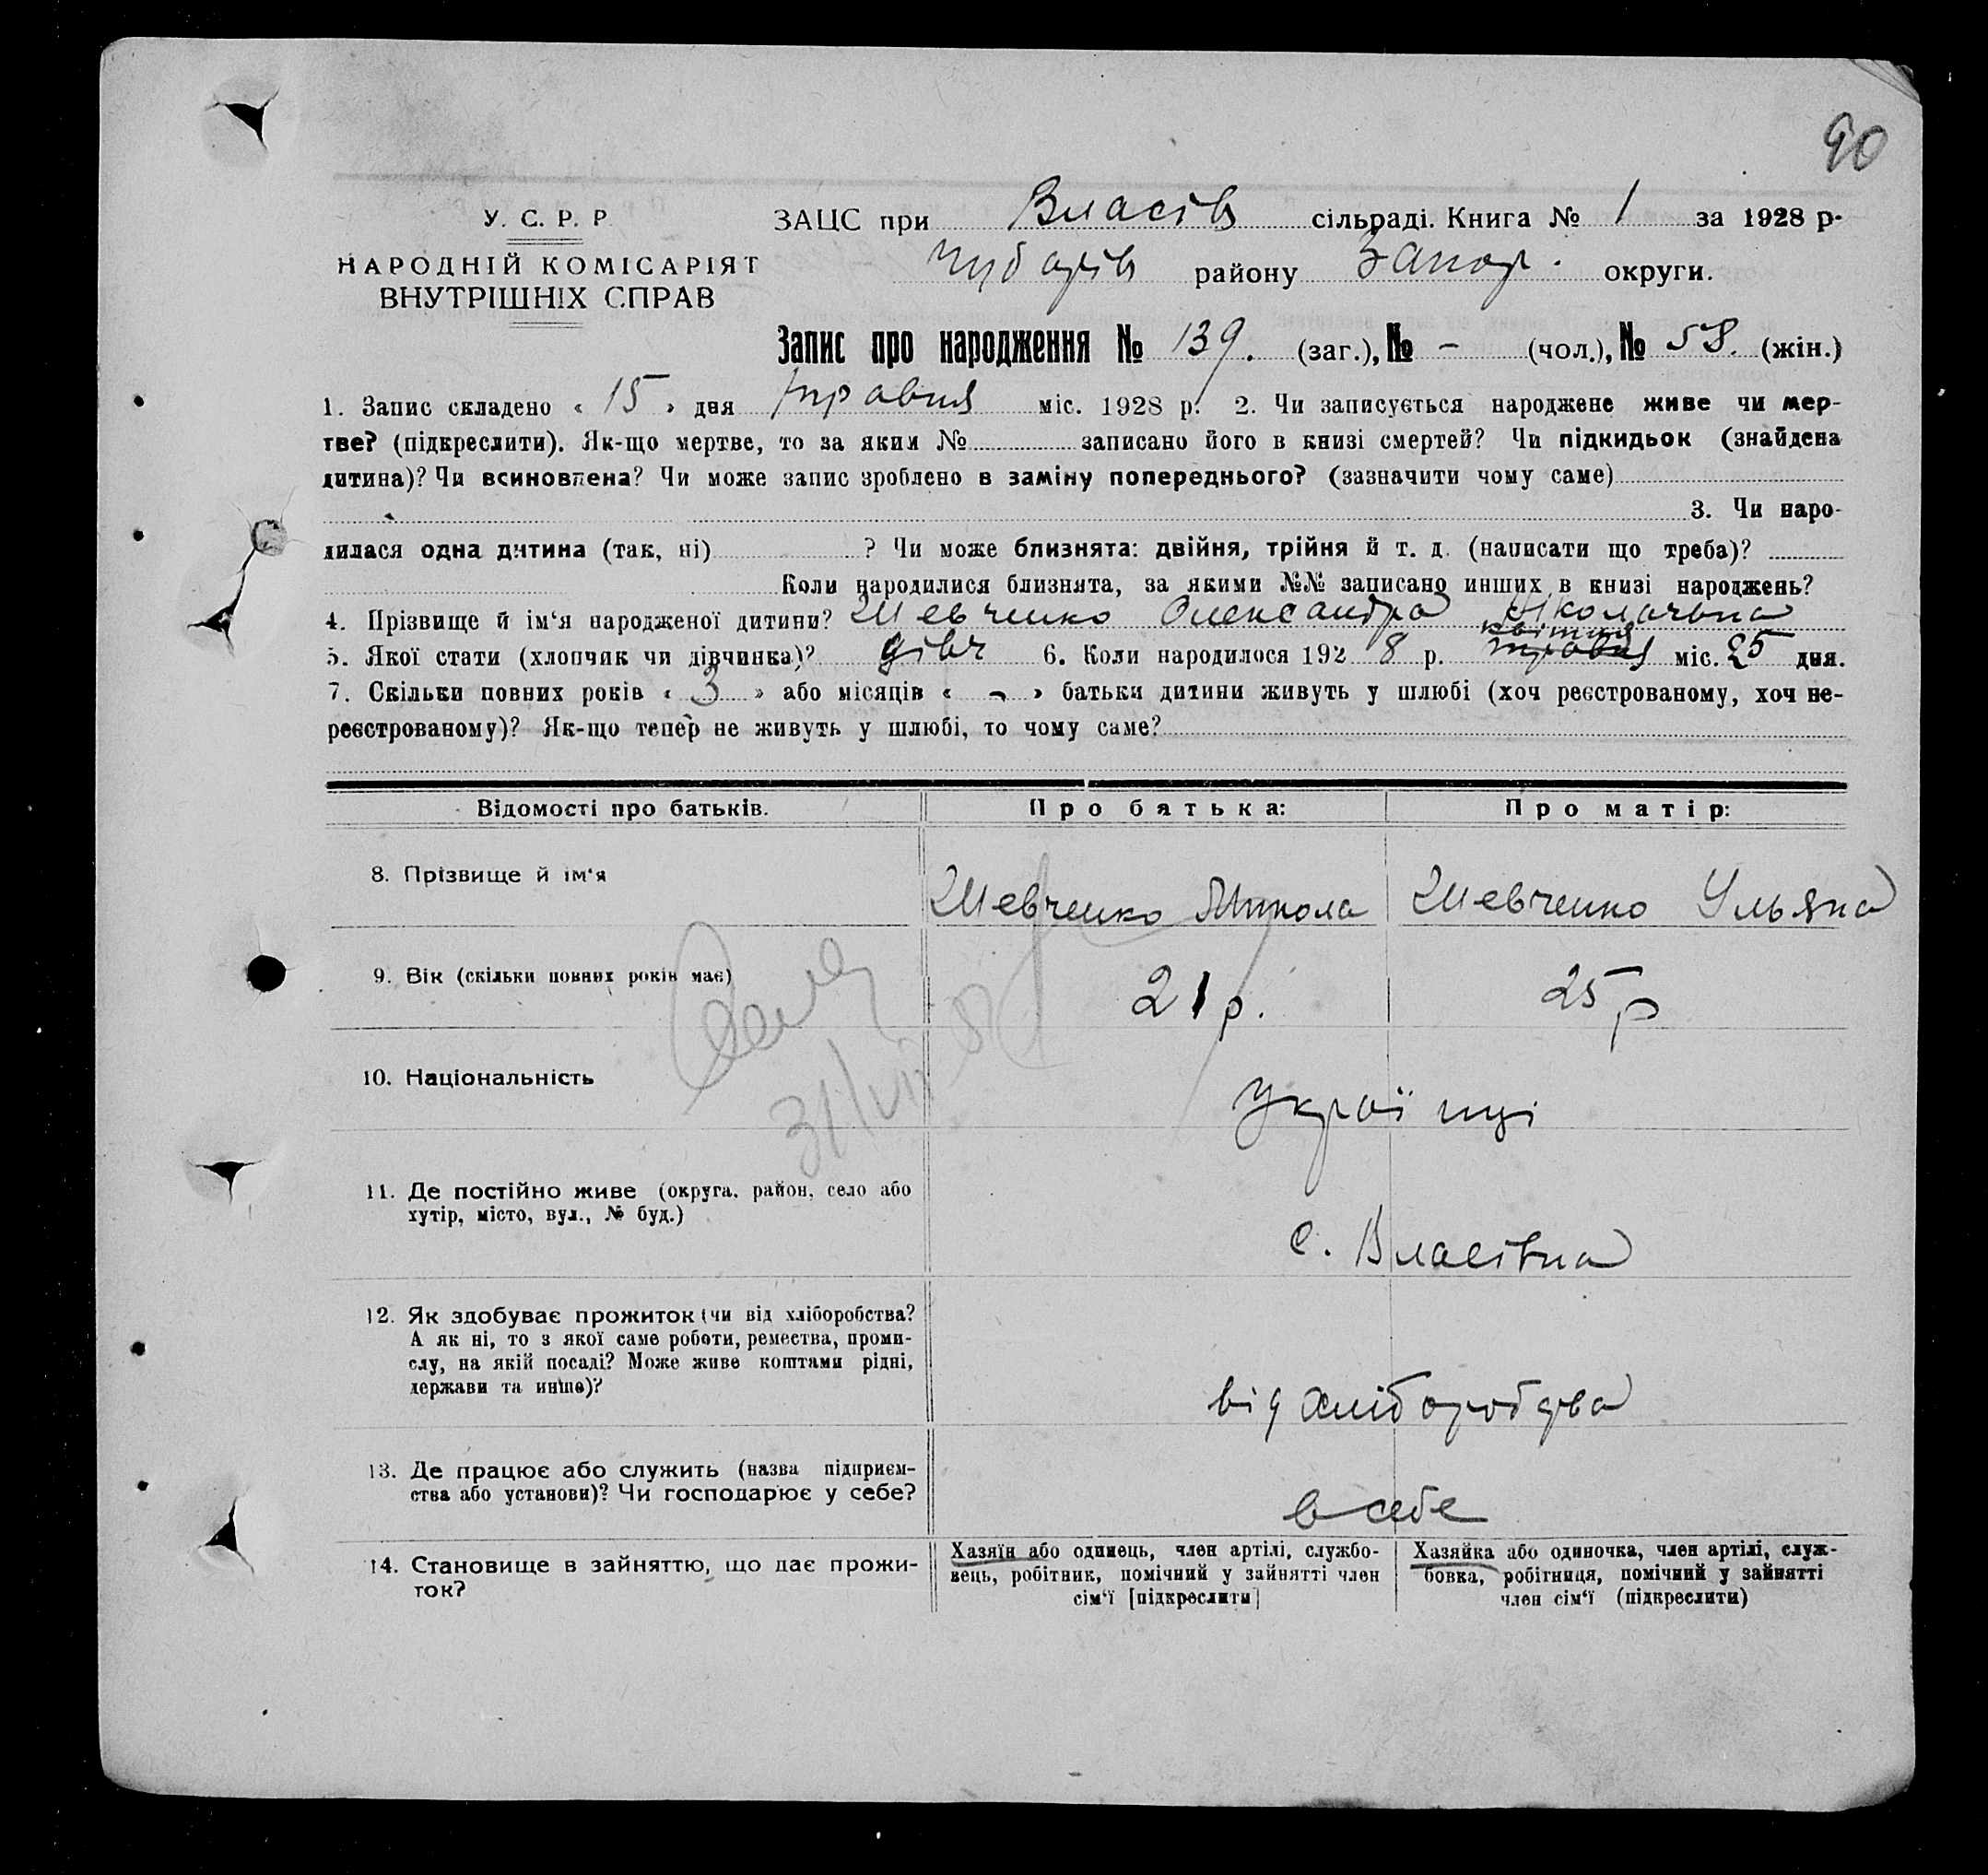 90
У. С. Р. Р.
НАРОДНІЙ КОМІСАРІЯТ
ВНУТРІШНІХ СПРАВ
ЗАЦС при Власів сільраді. Книга № 1 за 1928 р.
Чубарів району Запор. округи.
Запис про народження № 139. (заг.), № – (чол.), № 58. (жін.)
1. Запис складено « 15 » дня травня міс. 1928 р. 2. Чи записується народжене живе чи мер-
тве? (підкреслити). Як-що мертве, то за яким № записано його в книзі смертей? Чи підкидьок (знайдена
дитина)? Чи всиновлена? Чи може запис зроблено в заміну попереднього? (зазначити чому саме)
3. Чи наро-
дилася одна дитина (так, ні) ? Чи може близнята: двійня, трійня й т. д. (написати що треба)?
Коли народилися близнята, за якими №№ записано инших в книзі народжень?
4. Прізвище й ім'я народженої дитини? Шевченко Олександра Миколаївна
квітня
5. Якої стати (хлопчик чи дівчинка)? дівч 6. Коли народилося 192 8 р. травня міс. 25 дня.
7. Скільки повних років « 3 » або місяців « - » батьки дитини живуть у шлюбі (хоч реєстрованому, хоч не-
реєстрованому)? Як-що тепер не живуть у шлюбі, то чому саме?
Відомості про батьків. Про батька: Про матір:
8. Прізвище й ім'я Шевченко Микола Шевченко Ульяна
9. Вік (скільки повних років має) 21 р. 25 р
31/VII
10. Національність Українці
11. Де постійно живе (округа, район, село або
хутір, місто, вул., № буд.)
с. Власівка
12. Як здобуває прожиток (чи від хліборобства?
А як ні, то з якої саме роботи, ремества, проми-
слу, на якій посаді? Може живе коштами рідні,
держави та инше)?
від хліборобства
13. Де працює або служить (назва підприєм-
ства або установи)? Чи господарює у себе?
в себе
14. Становище в зайняттю, що дає прожи-
ток?
Хазяїн або одинець, член артілі, службо-
вець, робітник, помічний у зайнятті член
сім'ї [підкреслити]
Хазяйка або одиночка, член артілі, служ-
бовка, робітниця, помічний у зайнятті
член сім'ї (підкреслити)